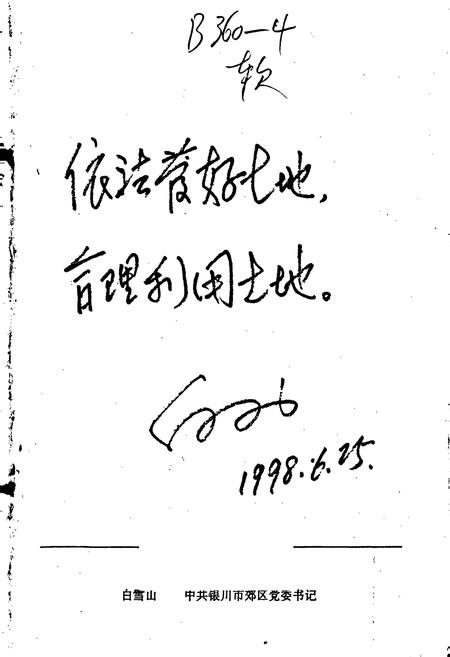 B360-4
软
依法管好土地，
合理利用土地。
1998.6.25.
白雪山 中共银川市郊区党委书记